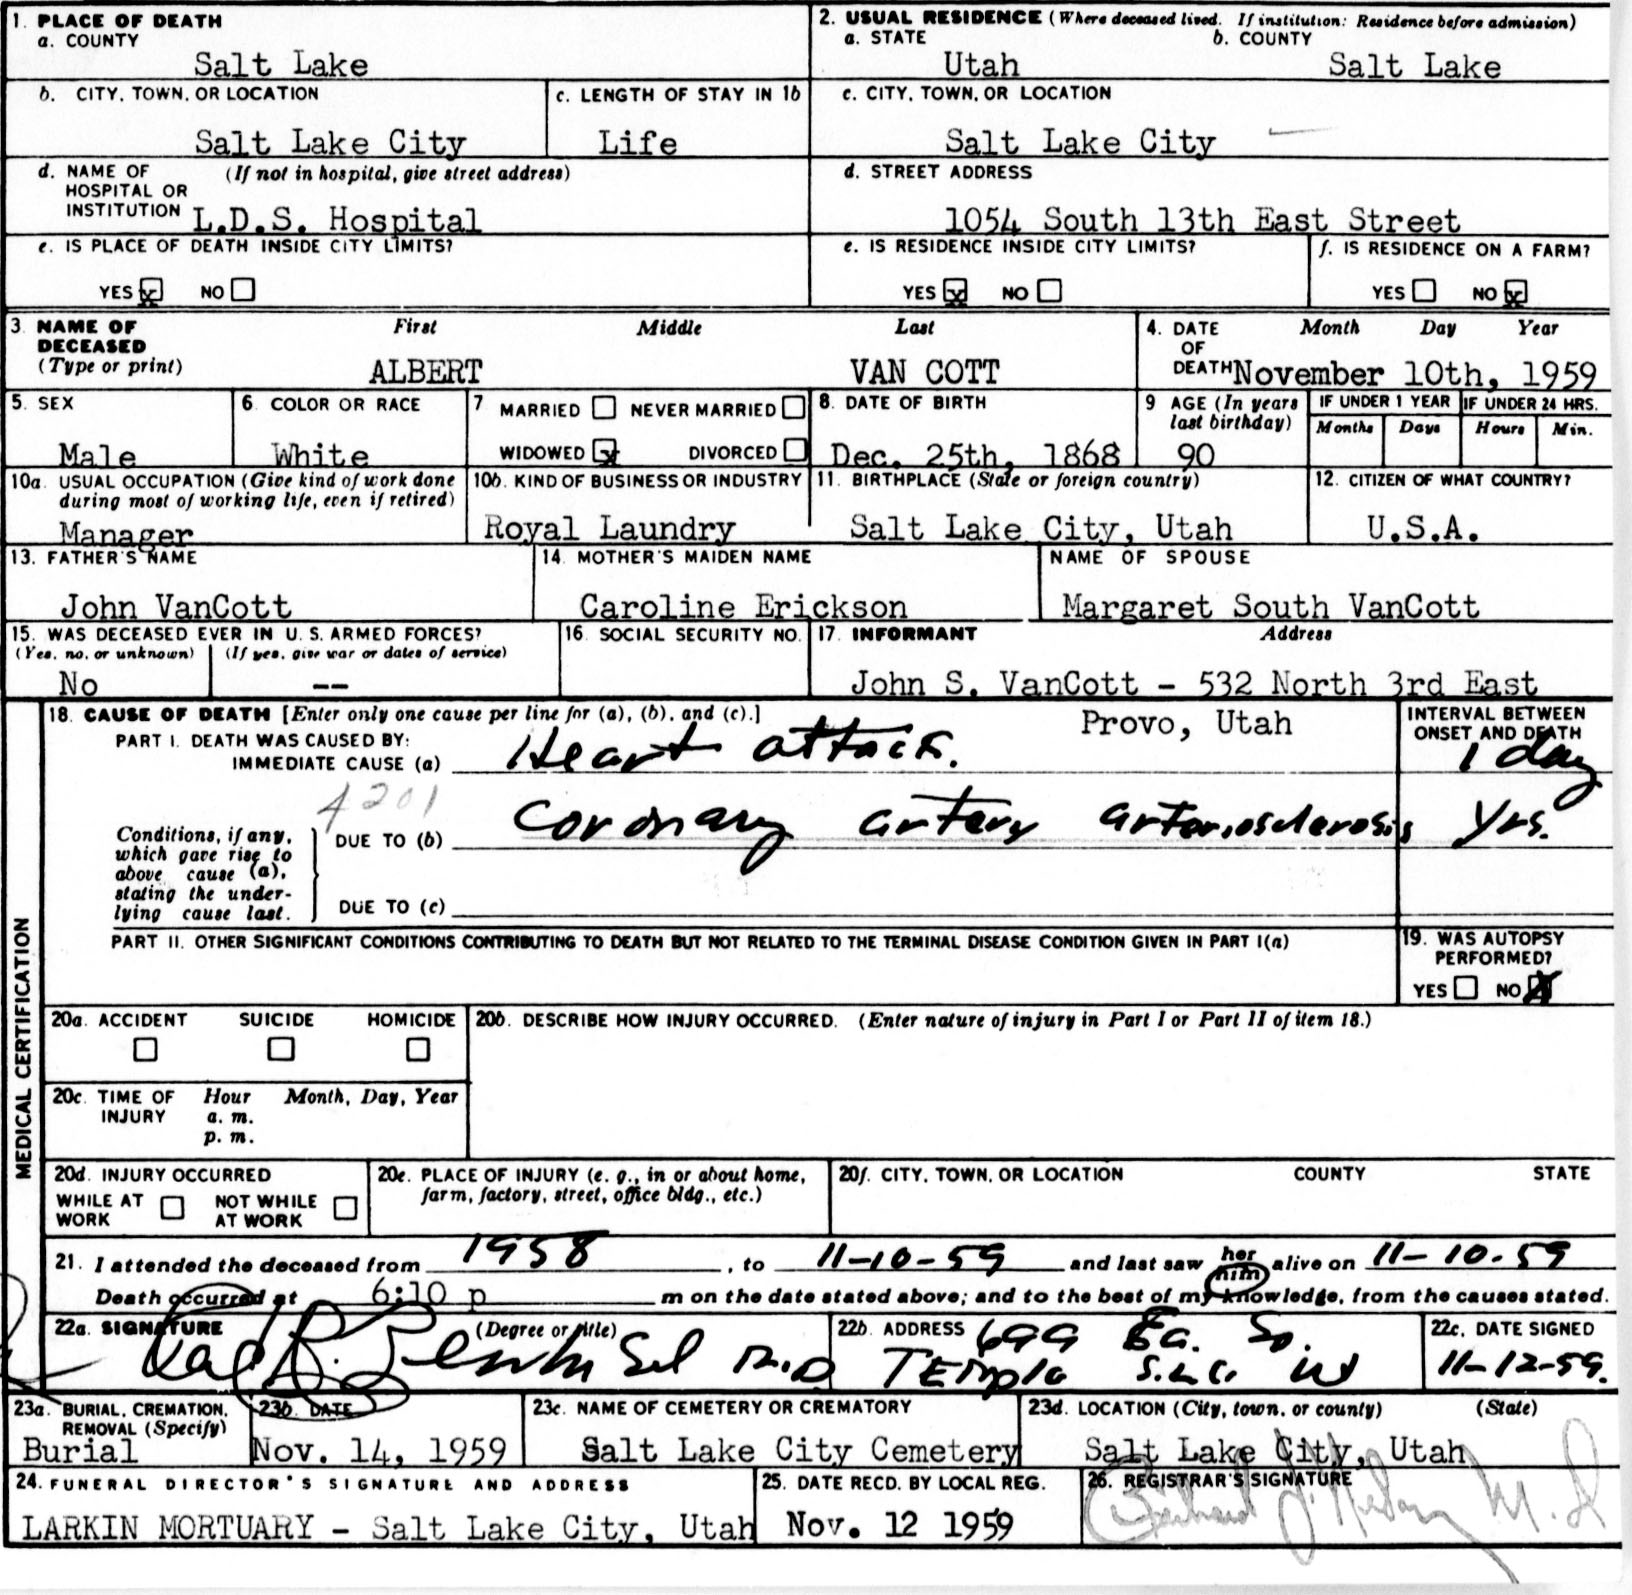 1. PLACE OF DEATH
a. COUNTY
Salt Lake
2. USUAL RESIDENCE (Where deceased lived. If institution: Residence before admission)
a. STATE b. COUNTY
Utah Salt Lake
b. CITY, TOWN, OR LOCATION
Salt Lake City
c. LENGTH OF STAY IN 1b
Life
c. CITY, TOWN, OR LOCATION
Salt Lake City
d. NAME OF HOSPITAL OR INSTITUTION (If not in hospital, give street address)
L.D.S. Hospital
d. STREET ADDRESS
1054 South 13th East Street
e. IS PLACE OF DEATH INSIDE CITY LIMITS?
YES x NO
e. IS RESIDENCE INSIDE CITY LIMITS?
YES x NO
f. IS RESIDENCE ON A FARM?
YES NO x
3. NAME OF DECEASED (Type or print)
First Middle Last
ALBERT VAN COTT
4. DATE OF DEATH Month Day Year
November 10th, 1959
5. SEX
Male
6. COLOR OR RACE
White
7 MARRIED NEVER MARRIED
WIDOWED x DIVORCED
8. DATE OF BIRTH
Dec. 25th, 1868
9 AGE (In years last birthday)
90
IF UNDER 1 YEAR
Months Days
IF UNDER 24 HRS.
Hours Min.
10a. USUAL OCCUPATION (Give kind of work done during most of working life, even if retired)
Manager
10b. KIND OF BUSINESS OR INDUSTRY
Royal Laundry
11. BIRTHPLACE (State or foreign country)
Salt Lake City, Utah
12. CITIZEN OF WHAT COUNTRY?
U.S.A.
13. FATHER'S NAME
John VanCott
14. MOTHER'S MAIDEN NAME
Caroline Erickson
NAME OF SPOUSE
Margaret South VanCott
15. WAS DECEASED EVER IN U. S. ARMED FORCES?
(Yes, no, or unknown) (If yes, give war or dates of service)
No --
16. SOCIAL SECURITY NO.
17. INFORMANT Address
John S. VanCott - 532 North 3rd East
Provo, Utah
MEDICAL CERTIFICATION
18. CAUSE OF DEATH [Enter only one cause per line for (a), (b), and (c).]
PART I. DEATH WAS CAUSED BY:
IMMEDIATE CAUSE (a) Heart attack.
INTERVAL BETWEEN ONSET AND DEATH
1 day
4201
Conditions, if any, which gave rise to above cause (a), stating the underlying cause last.
DUE TO (b) Coronary artery arteriosclerosis Yrs.
DUE TO (c)
PART II. OTHER SIGNIFICANT CONDITIONS CONTRIBUTING TO DEATH BUT NOT RELATED TO THE TERMINAL DISEASE CONDITION GIVEN IN PART I(a)
19. WAS AUTOPSY PERFORMED?
YES NO X
20a. ACCIDENT SUICIDE HOMICIDE
20b. DESCRIBE HOW INJURY OCCURRED. (Enter nature of injury in Part I or Part II of item 18.)
20c. TIME OF INJURY Hour Month, Day, Year
a. m.
p. m.
20d. INJURY OCCURRED
WHILE AT WORK NOT WHILE AT WORK
20e. PLACE OF INJURY (e. g., in or about home, farm, factory, street, office bldg., etc.)
20f. CITY, TOWN, OR LOCATION COUNTY STATE
21. I attended the deceased from 1958, to 11-10-59 and last saw her him alive on 11-10-59
Death occurred at 6:10 p m on the date stated above; and to the best of my knowledge, from the causes stated.
22a. SIGNATURE (Degree or title)
M.D
22b. ADDRESS 699 Ea. So.
Temple S.L.C. Ut
22c. DATE SIGNED
11-12-59.
23a. BURIAL, CREMATION, REMOVAL (Specify)
Burial
23b. DATE
Nov. 14, 1959
23c. NAME OF CEMETERY OR CREMATORY
Salt Lake City Cemetery
23d. LOCATION (City, town, or county) (State)
Salt Lake City, Utah
24. FUNERAL DIRECTOR'S SIGNATURE AND ADDRESS
LARKIN MORTUARY - Salt Lake City, Utah
25. DATE RECD. BY LOCAL REG.
Nov. 12 1959
26. REGISTRAR'S SIGNATURE
M. D